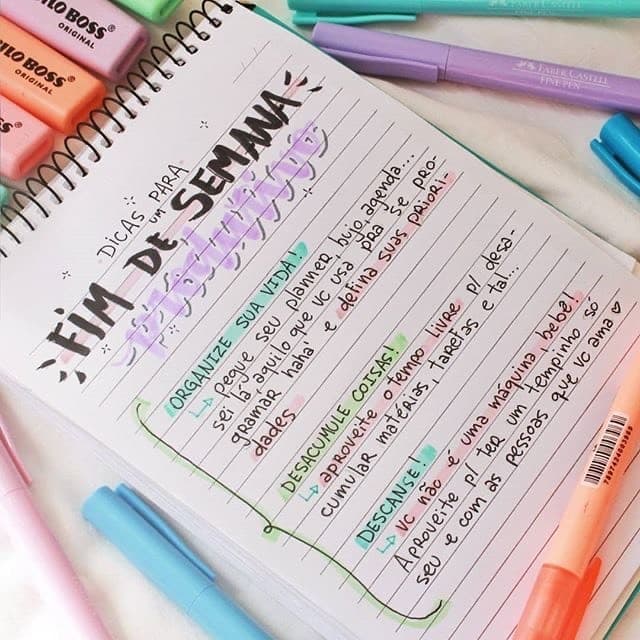 LO BOSS
ORIGINAL
LO BOSS
ORIGINAL
SS
FABER-CASTELL
FINE PEN
DICAS PARA
um
FIM DE SEMANA
produtivo
ORGANIZE SUA VIDA!
↳ pegue seu planner, bujo, agenda...
sei lá aquilo que vc usa pra se pro-
gramar haha' e defina suas priori-
dades
DESACUMULE COISAS!
↳ aproveite o tempo livre p/ desa-
cumular matérias, tarefas e tal...
DESCANSE!
↳ vc não é uma máquina bebê!
Aproveite p/ ter um tempinho só
seu e com as pessoas que vc ama ♡